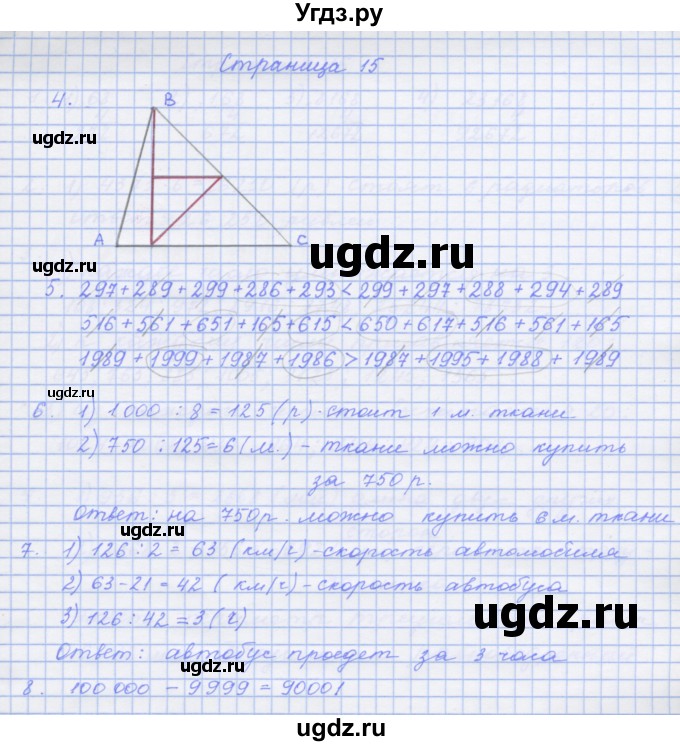 Угдз.ру
Страница 15
4.
B
ugdz.ru
A
C
ugdz.ru
5. 297+289+299+286+293<299+297+288+294+289
516+561+651+165+615<650+617+516+561+165
1989+1999+1987+1986>1987+1995+1988+1989
ugdz.ru
6. 1) 1000:8=125(р)-стоит 1 м. ткани
2) 750:125=6(м.)-ткани можно купить
ugdz.ru
за 750р.
Ответ: на 750р. можно купить 6 м. ткани
ugdz.ru
7. 1) 126:2=63 (км/ч)-скорость автомобиля
2) 63-21=42 (км/ч)-скорость автобуса
ugdz.ru
3) 126:42=3(ч)
ugdz.ru
Ответ: автобус проедет за 3 часа
8. 100000-9999=90001
ugdz.ru
ugdz.ru